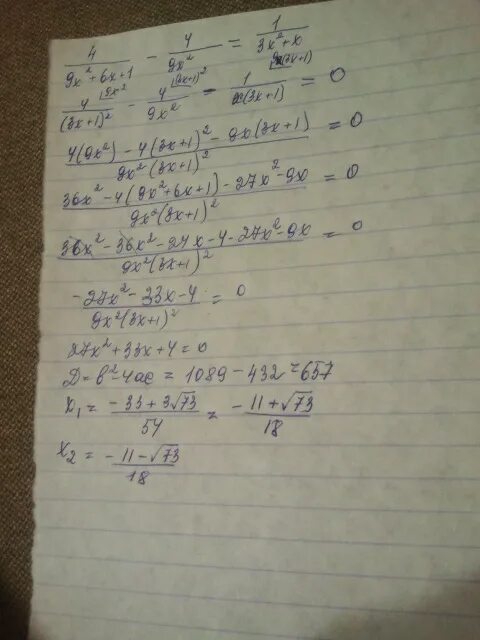 4/(9x²+6x+1) - 4/(9x²) = 1/(3x²+x)
4/(3x+1)² - 4/(9x²) - 1/(x(3x+1)) = 0
(4(9x²) - 4(3x+1)² - 9x(3x+1))/(9x²(3x+1)²) = 0
(36x² - 4(9x²+6x+1) - 27x² - 9x)/(9x²(3x+1)²) = 0
(36x² - 36x² - 24x - 4 - 27x² - 9x)/(9x²(3x+1)²) = 0
(-27x² - 33x - 4)/(9x²(3x+1)²) = 0
27x² + 33x + 4 = 0
Д = в² - 4ac = 1089 - 432 = 657
x₁ = (-33 + 3√73)/54 = (-11 + √73)/18
x₂ = (-11 - √73)/18